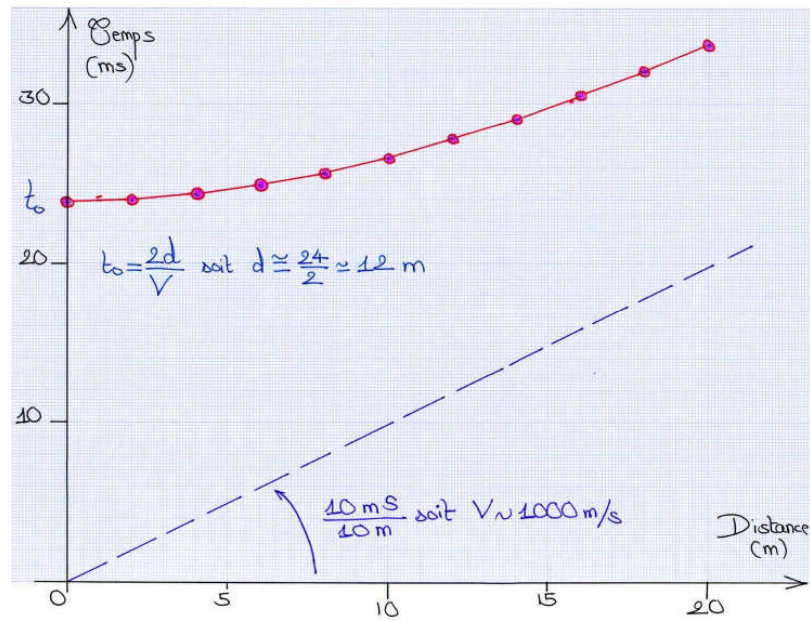 Temps
(ms)
30
t₀
20
t₀ = 2d/V soit d ≃ 24/2 ≃ 12 m
10
10 mS/10 m soit V ~ 1000 m/s
Distance
(m)
0
5
10
15
20